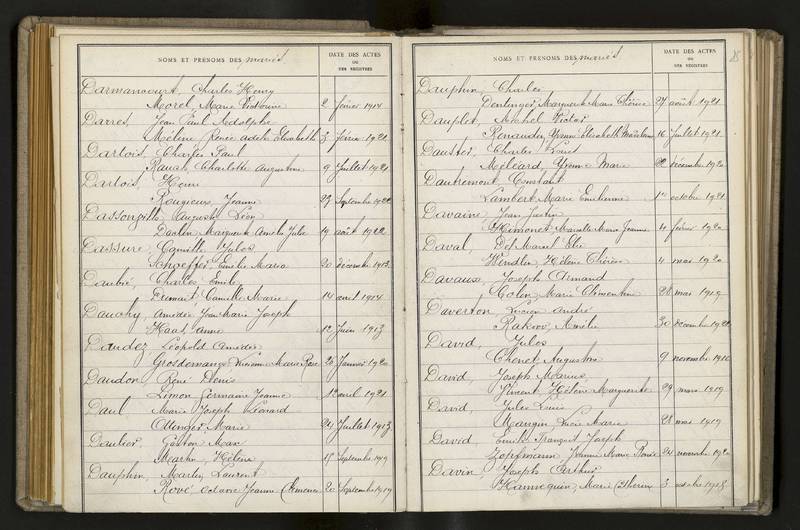 NOMS ET PRÉNOMS DES mariés
DATE DES ACTES
OU
DES REGISTRES
Darmancourt, Charles Henry
Morel, Marie Victorine 2 février 1914
Darres Jean Paul Adolphe
Mélène Renée Adèle Elisabeth 3 février 1921
Dartois, Charles Paul
Rausch, Charlotte Augustine 9 Juillet 1921
Dartois, Henri
Rougieux, Jeanne 29 Septembre 1922
Auguste Léon
Marguerite Amélie Julie 19 août 1922
Dassure, Camille Jules
Schoeffer, Emilie Maria 20 décembre 1913
Daubié, Charles Emile
Camille Marie 14 avril 1914
Dauchy, Amédée Jean Marie Joseph
Haas, Anne 12 Juin 1913
Daudez, Léopold Amédée
Marie Rose 26 Janvier 1920
Daudon, René Denis
Limon, Germaine Jeanne avril 1921
Daul, Marie Joseph Léonard
Ottinger, Marie 24 Juillet 1913
Daulier, Gaston Max
Martin, Hélène 18 Septembre 1919
Dauphin, Martin Laurent
Rové, Octavie Jeanne Clémence 20 Septembre 1919
NOMS ET PRÉNOMS DES mariés
DATE DES ACTES
OU
DES REGISTRES
Dauphin, Charles
Marguerite Marie Thérèse 27 août 1921
Michel Victor
Renaudin, Yvonne Elisabeth 16 Juillet 1921
Charles Louis
Méléard, Yvonne Marie 22 décembre 1920
Dautremont, Constant
Lambert, Marie Emilienne octobre 1921
Davaine, Jean Justin
Himonet, Marcelle Marie Jeanne 4 février 1920
Daval, Marcel Elie
Wendlin, Hélène Thérèse 4 mai 1920
Davaux, Joseph Armand
Colin, Marie Clémentine 28 mai 1919
Daverton, Lucien André
Amélie 30 décembre 1920
David, Jules
Chenet, Augustine 9 novembre 1910
David, Joseph Marius
Vincent, Hélène Marguerite 29 mars 1919
David, Jules Louis
Mangin, Lucie Marie 28 mai 1919
David, Emile François Joseph
Jeanne Marie 24 novembre 1920
Davin, Joseph Arthur
Hannequin, Marie 3 octobre